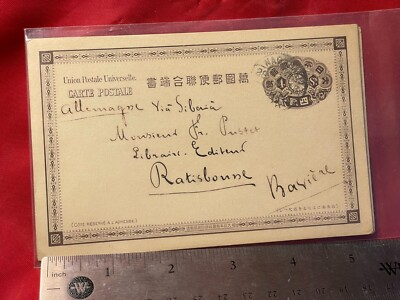 Union Postale Universelle.
萬國郵便聯合端書
CARTE POSTALE
Allemagne Via Siberia
Monsieur Fr. Pustet
Libraire-Editeur
Ratisbonne
Bavière
(CÔTÉ RÉSERVÉ À L'ADRESSE.)
inch 1 2 3 4 5
W
W